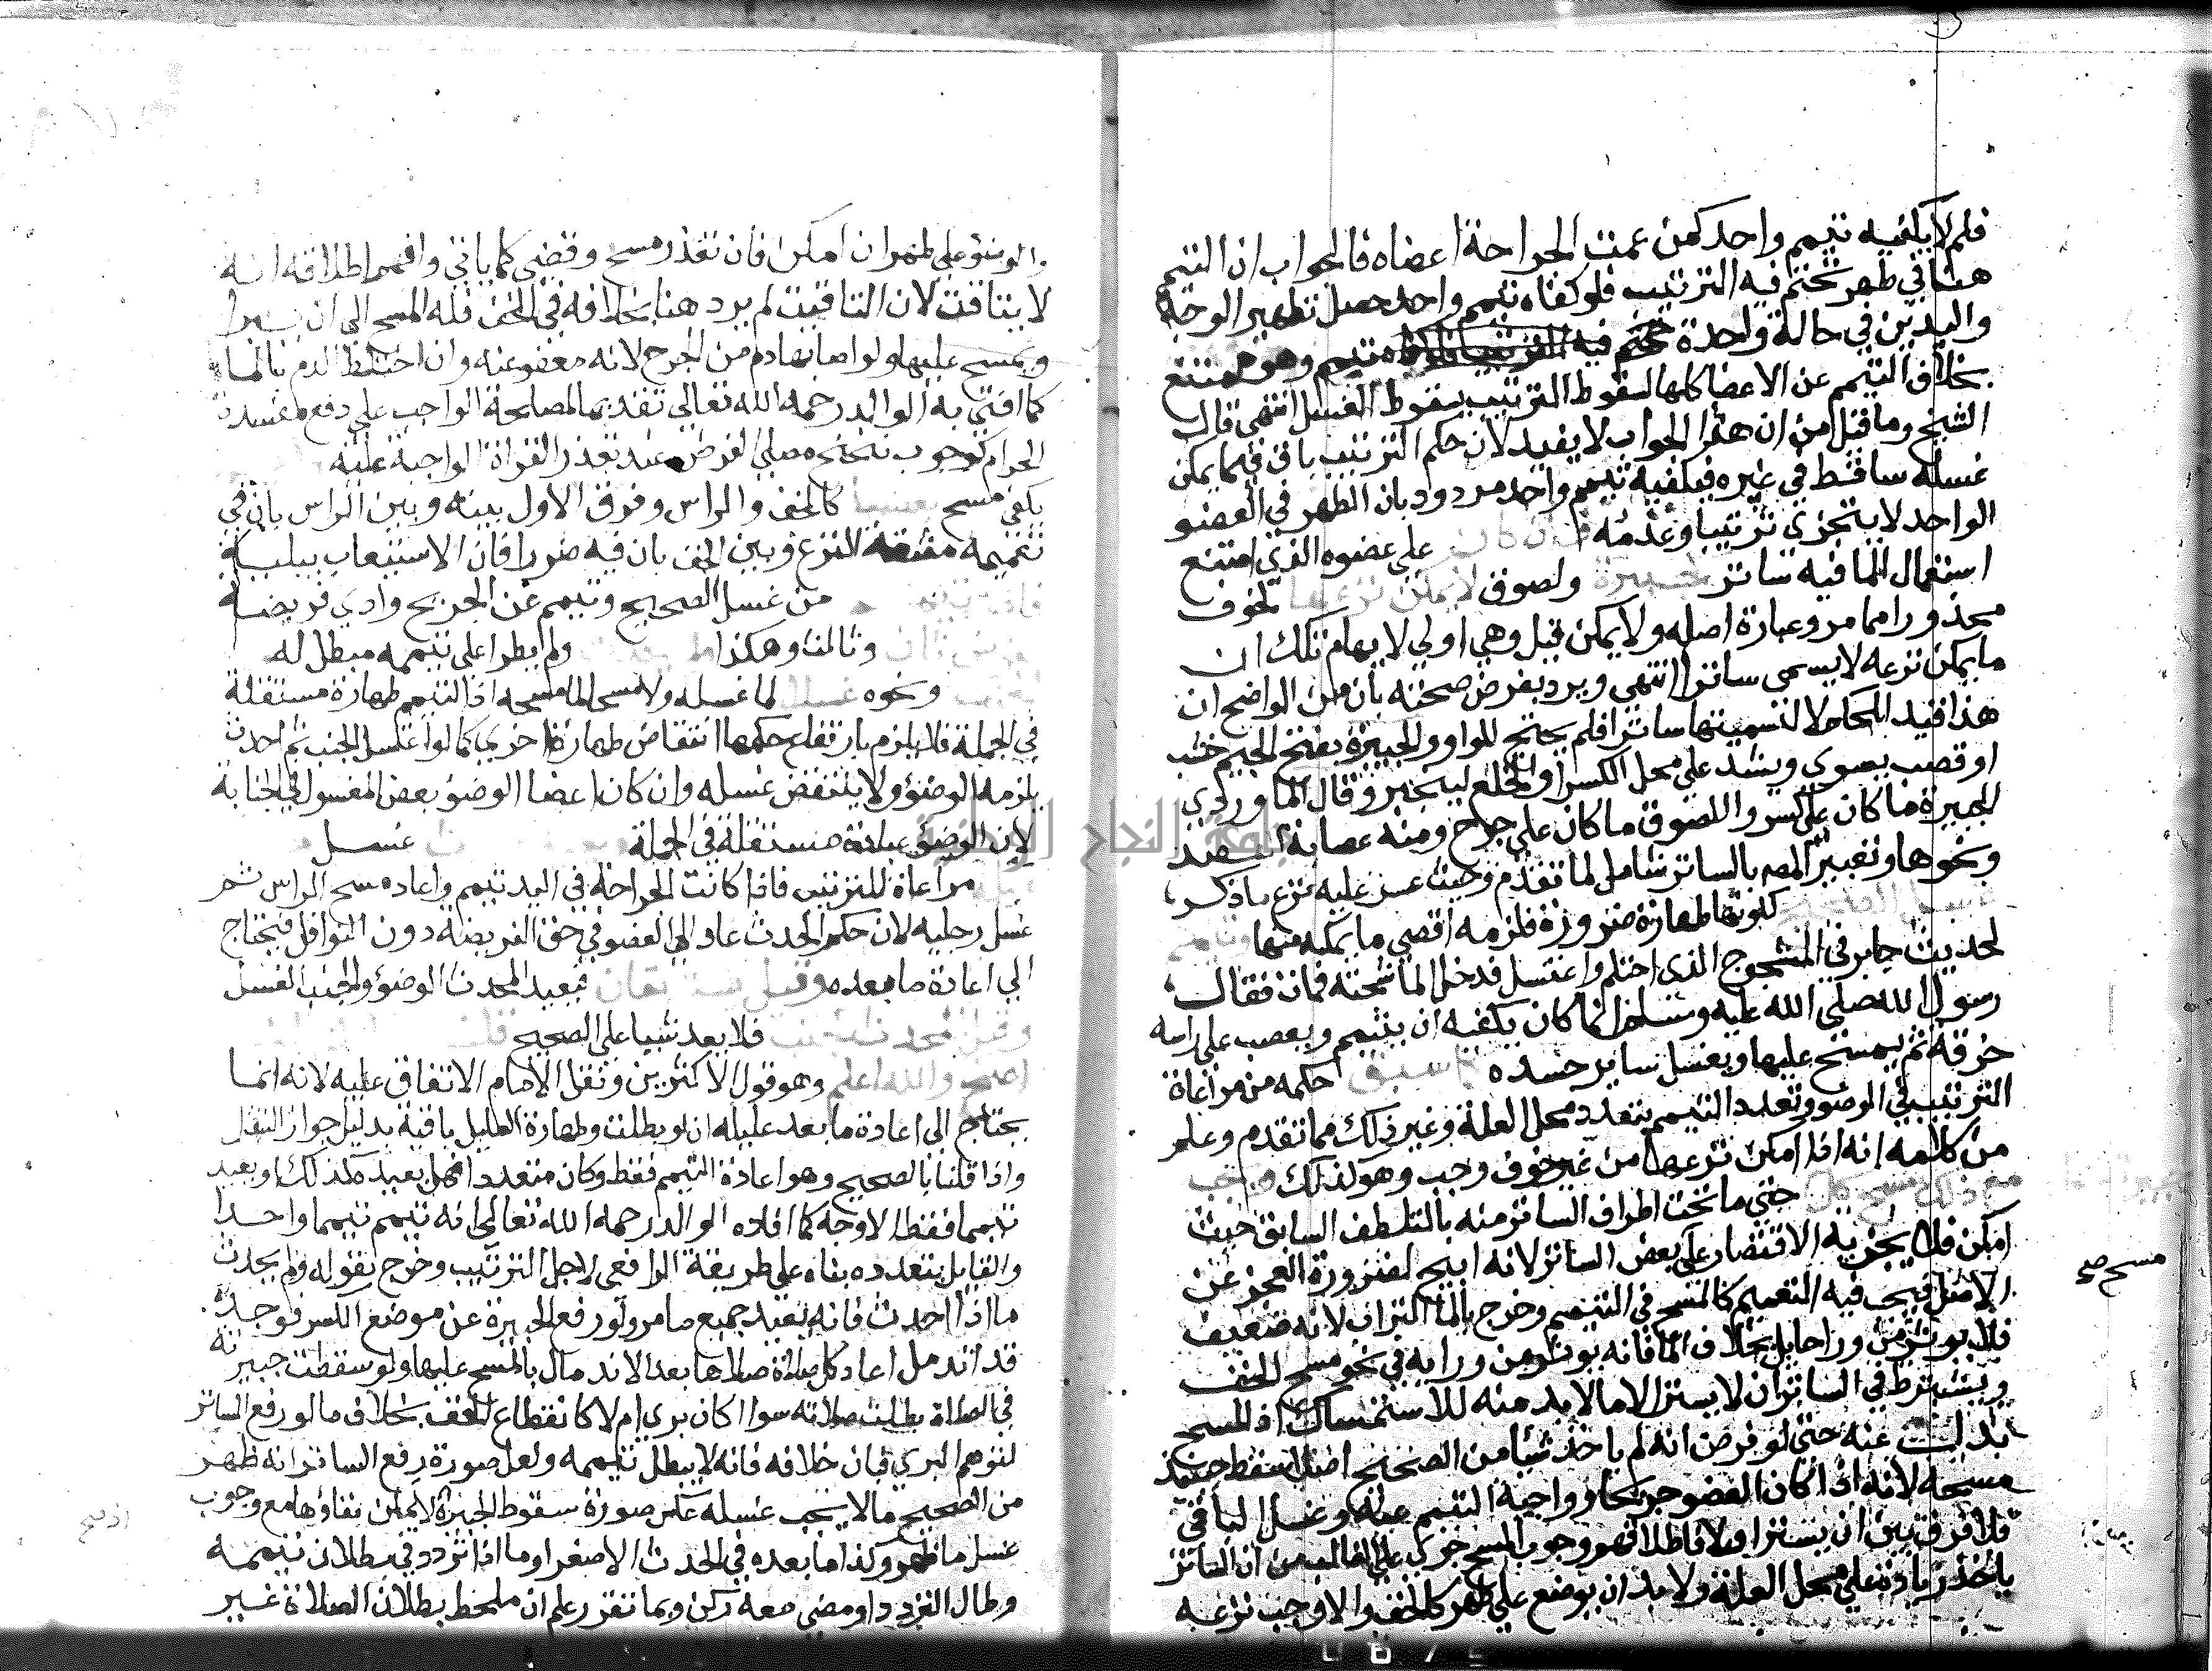 فلم لا يكفيه تيمم واحد كمن عمت الجراحة اعضاه فالجواب ان التيمم
هنا في طهر تحتم فيه الترتيب فلو كفاه تيمم واحد حصل تطهير الوجه
واليدين في حالة واحدة تحتم فيه تيمم وهو ممتنع
بخلاف التيمم عن الاعضا كلها لسقوط الترتيب بسقوط الغسل انتهى قال
الشيخ وما قيل من ان هذا الجواب لا يفيد لان حكم الترتيب باق فيما يمكن
غسله ساقط في غيره فيكفيه تيمم واحد مردود بان الطهر في العضو
الواحد لا يتجزى ترتيبا وعدمه فان كان على عضوه الذي امتنع
استعمال الما فيه ساتر كجبيرة ولصوق لا يمكن نزعها لخوف
محذور مما مر وعبارة اصله ولا يمكن قيل وهي اولي لايهام تلك ان
ما يمكن نزعه لا يسمى ساترا انتهى ويرد بفرض صحته بان من الواضح ان
هذا قيد للحكم لا لتسميتها ساترا فلم يحتج للواو والجبيرة بفتح الجيم خشب
او قصب يسوى ويشد على محل الكسر او الخلع لينجبر وقال الماوردي
الجبيرة ما كان على كسر واللصوق ما كان على جراح ومنه عصابة الفصد
ونحوها وتعبير المص بالساتر شامل لما تقدم وحيث عسر عليه نزع ما ذكر
غسل الصحيح لكونها طهارة ضرورة فلزمه اقصى ما يمكنه منها وتيمم
لحديث جابر في المشجوج الذي احتلم واغتسل فدخل الما شجته فمات فقال
رسول الله صلى الله عليه وسلم انما كان يكفيه ان يتيمم ويعصب على راسه
خرقة ثم يمسح عليها ويغسل ساير جسده كما سبق حكمه من مراعاة
الترتيب في الوضو وتعدد التيمم بتعدد محل العلة وغير ذلك مما تقدم وعلم
من كلامه انه اذا امكن نزعها من غير خوف وجب وهو كذلك ويجب
مع ذلك مسح كل حتى ما تحت اطراف الساتر منه بالتلطف السابق حيث
امكن فلا يجزيه الاقتصار على بعض الساتر لانه ابيح لضرورة العجز عن
الاصل فيجب فيه التعميم كالمسح في التيمم وخرج بالما التراب لانه ضعيف
فلا يوثر من ورا حايل بخلاف الما فانه يوثر من ورايه في نحو مسح الخف
ويشترط في الساتر ان لا يستر الا ما لا بد منه للاستمساك اذ المسح
بدل عنه حتى لو فرض انه لم ياخذ شيا من الصحيح اصلا سقط حينيذ
مسحه لانه اذا كان العضو جريحا وواجبه التيمم عنه وغسل الباقي
فلا فرق بين ان يستر او لا فاطلاقهم وجوب المسح جري على الغالب من ان الساتر
ياخذ زيادة على محل العلة ولا بد ان يوضع على طهر كالخف والا وجب نزعه
مسح صح
والوضو على طهر ان امكن فان تعذر مسح وقضى كما ياتي وافهم اطلاقه انه
لا يتاقت لان التاقيت لم يرد هنا بخلافه في الخف فله المسح الى ان يبرا
ويمسح عليها ولو اصابها دم من الجرح لانه معفو عنه وان اختلط الدم بالما
كما افتى به الوالد رحمه الله تعالى تقديما لمصلحة الواجب على دفع مفسدة
الحرام كوجوب تنحنح مصلي الفرض عند تعذر القراة الواجبة عليه
يكفي مسح بعضها كالخف والراس وفرق الاول بينه وبين الراس بان في
تعميمه مشقة النزع وبين الخف بان فيه ضررا فان الاستيعاب يبليه
فاذا تيمم من غسل الصحيح وتيمم عن الجريح وادي فريضة
وثالث وهكذا ولم يطرا على تيممه مبطل له
ونحوه غسل لما غسله ولا مسح لما مسحه اذ التيمم طهارة مستقلة
في الجملة فلا يلزم بارتفاع حكمها انتقاض طهارة اخرى كما لو اغتسل الجنب ثم احدث
يلزمه الوضو ولا ينتقض غسله وان كان اعضا الوضو بعض المغسول في الجنابة
لان الوضو عبادة مستقلة في الجملة غسل
مراعاة للترتيب فاذا كانت الجراحة في اليد تيمم واعاد مسح الراس ثم
غسل رجليه لان حكم الحدث عاد الى العضو في حق الفريضة دون النوافل فيحتاج
الى اعادة ما بعده وقيل يستانفان فيعيد المحدث الوضو والجنب الغسل
وقيل المحدث كجنب فلا يعد شيا على الصحيح قلت
اصح والله اعلم وهو قول الاكثرين ونقل الامام الاتفاق عليه لانه انما
يحتاج الى اعادة ما بعد عليله ان لو بطلت وطهارة العليل باقية بدليل جواز التنفل
واذا قلنا بالصحيح وهو اعادة التيمم فقط وكان متعددا فهل يعيده كذلك او يعيد
تيمما فقط الاوجه كما افاده الوالد رحمه الله تعالى انه تيمم تيمما واحدا
والقايل بتعدده بناه على طريقة الرافعي لاجل الترتيب وخرج بقوله ولم يحدث
ما اذا احدث فانه يعيد جميع ما مر ولو رفع الجبيرة عن موضع الكسر فوجده
قد اندمل اعاد كل صلاة صلاها بعد الاندمال بالمسح عليها ولو سقطت جبيرته
في الصلاة بطلت صلاته سوا كان بري ام لا كانقطاع الخف بخلاف ما لو رفع الساتر
لتوهم البري فبان خلافه فانه لا يبطل تيممه ولعل صورة رفع الساتر انه ظهر
من الصحيح ما لا يجب غسله عكس صورة سقوط الجبيرة لا يمكن بقاوها مع وجوب
غسل ما ظهر وكذا ما بعده في الحدث الاصغر او ما اذا تردد في بطلان تيممه
وطال التردد او مضى معه ركن وبما تقرر علم ان ملحظ بطلان الصلاة غير
جامعة النجاح الوطنية